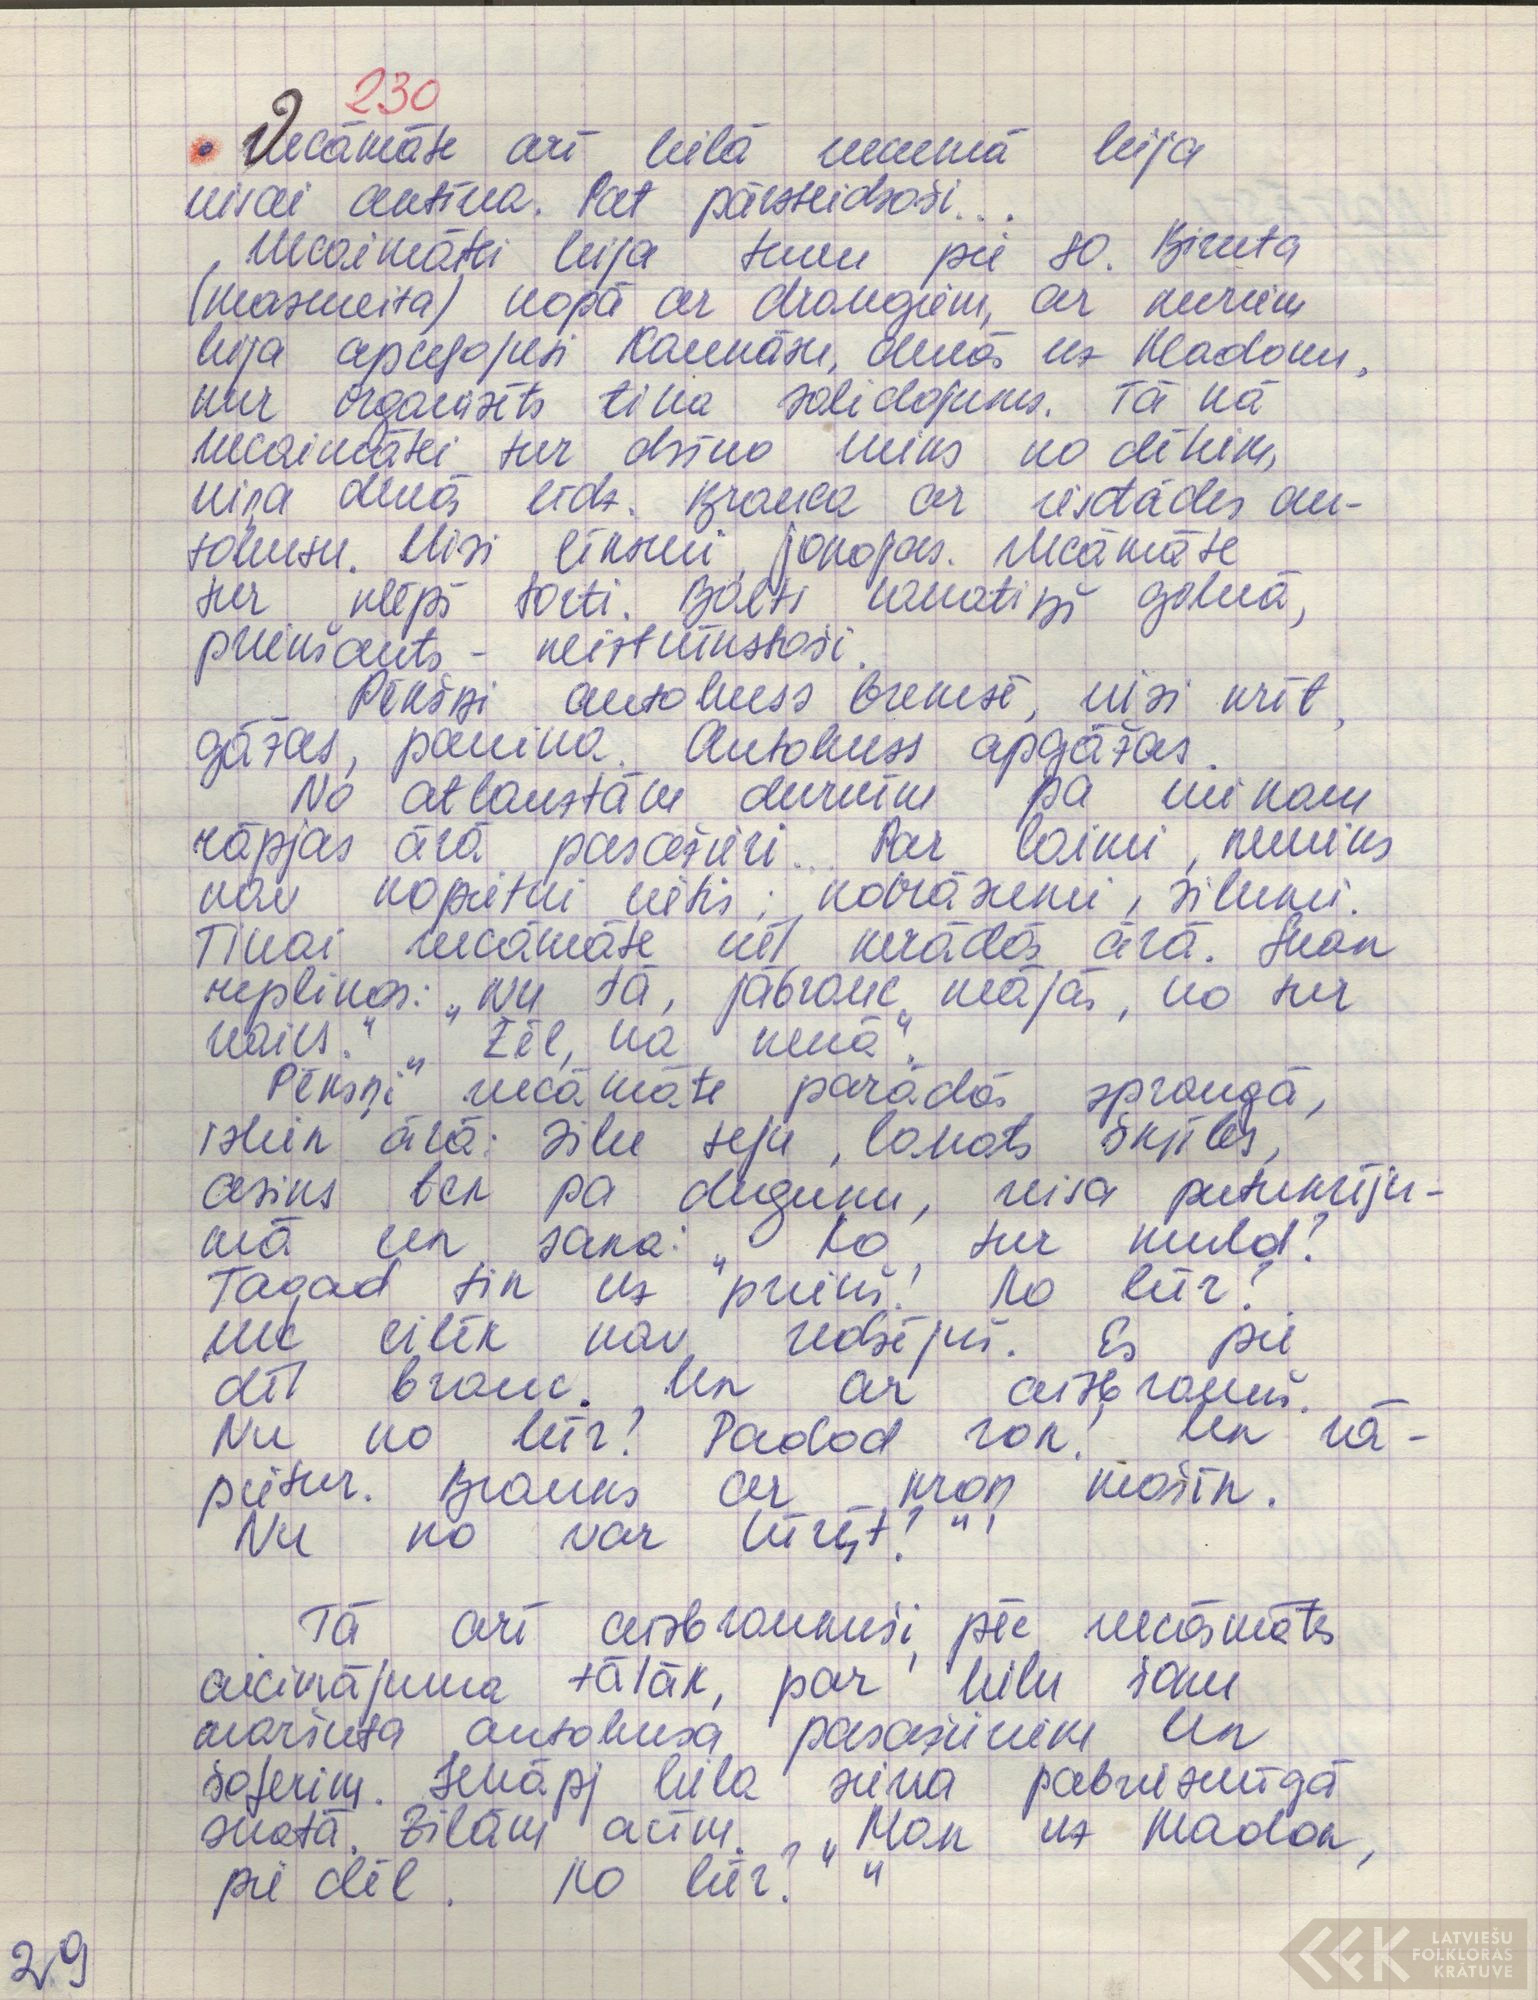 230
Vecāmāte arī lielā vecumā bija
visai aktīva. Pat pārsteidzoši...
Vecaimātei bija tuvu pie 80. Biruta
(mazmeita) kopā ar draugiem, ar kuriem
bija apciemojusi Kazdangu, devās uz Madonu,
kur organizēts tika salidojums. Tā kā
vecaimātei tur dzīvo viens no dēliem,
viņa devās līdz. Brauca ar iestādes au-
tobusu. Visi līksmi, jokojas. Vecāmāte
tur klēpī torti. Balts lakatiņš galvā,
priekšauts - neiztrūkstoši.
Pēkšņi autobuss bremzē, visi krīt,
gāžas, panika. Autobuss apgāžas.
No atlauztām durvīm pa vienam
rāpjas ārā pasažieri. Par laimi, neviens
nav nopietni cietis; nobrāzumi, zilumi.
Tikai vecāmāte vēl nerādās ārā. Skan
replikas: „Nu tā, jābrauc mājās, no tur
vairs." „Žēl, ka nevā".
Pēkšņi vecāmāte parādās spraugā,
izlien ārā: zilu seju, lakats šķībs,
asins tek pa degunu, visa putukrēju-
mā un saka: „Ko tur muld!
Tagad tik uz priekš! Ko būr?
vec cilēk nav redzējuš. Es pie
dēl brauc. Un ar aizbraukš.
Nu ko būr? Padod rok! Un kā-
piet tur. Brauks ar krav mašīn.
Nu ko var būrēt?"
Tā arī aizbraukuši pēc vecāsmātes
aicinājuma tālāk, par lielu šoku
maršruta autobusa pasažieriem un
šoferim. Iekāpj liela sieva pabriesmīgā
skatā. Zilām acīm. „Man uz Madon,
pie dēl. Ko būr?"
29
LATVIEŠU
FOLKLORAS
KRĀTUVE